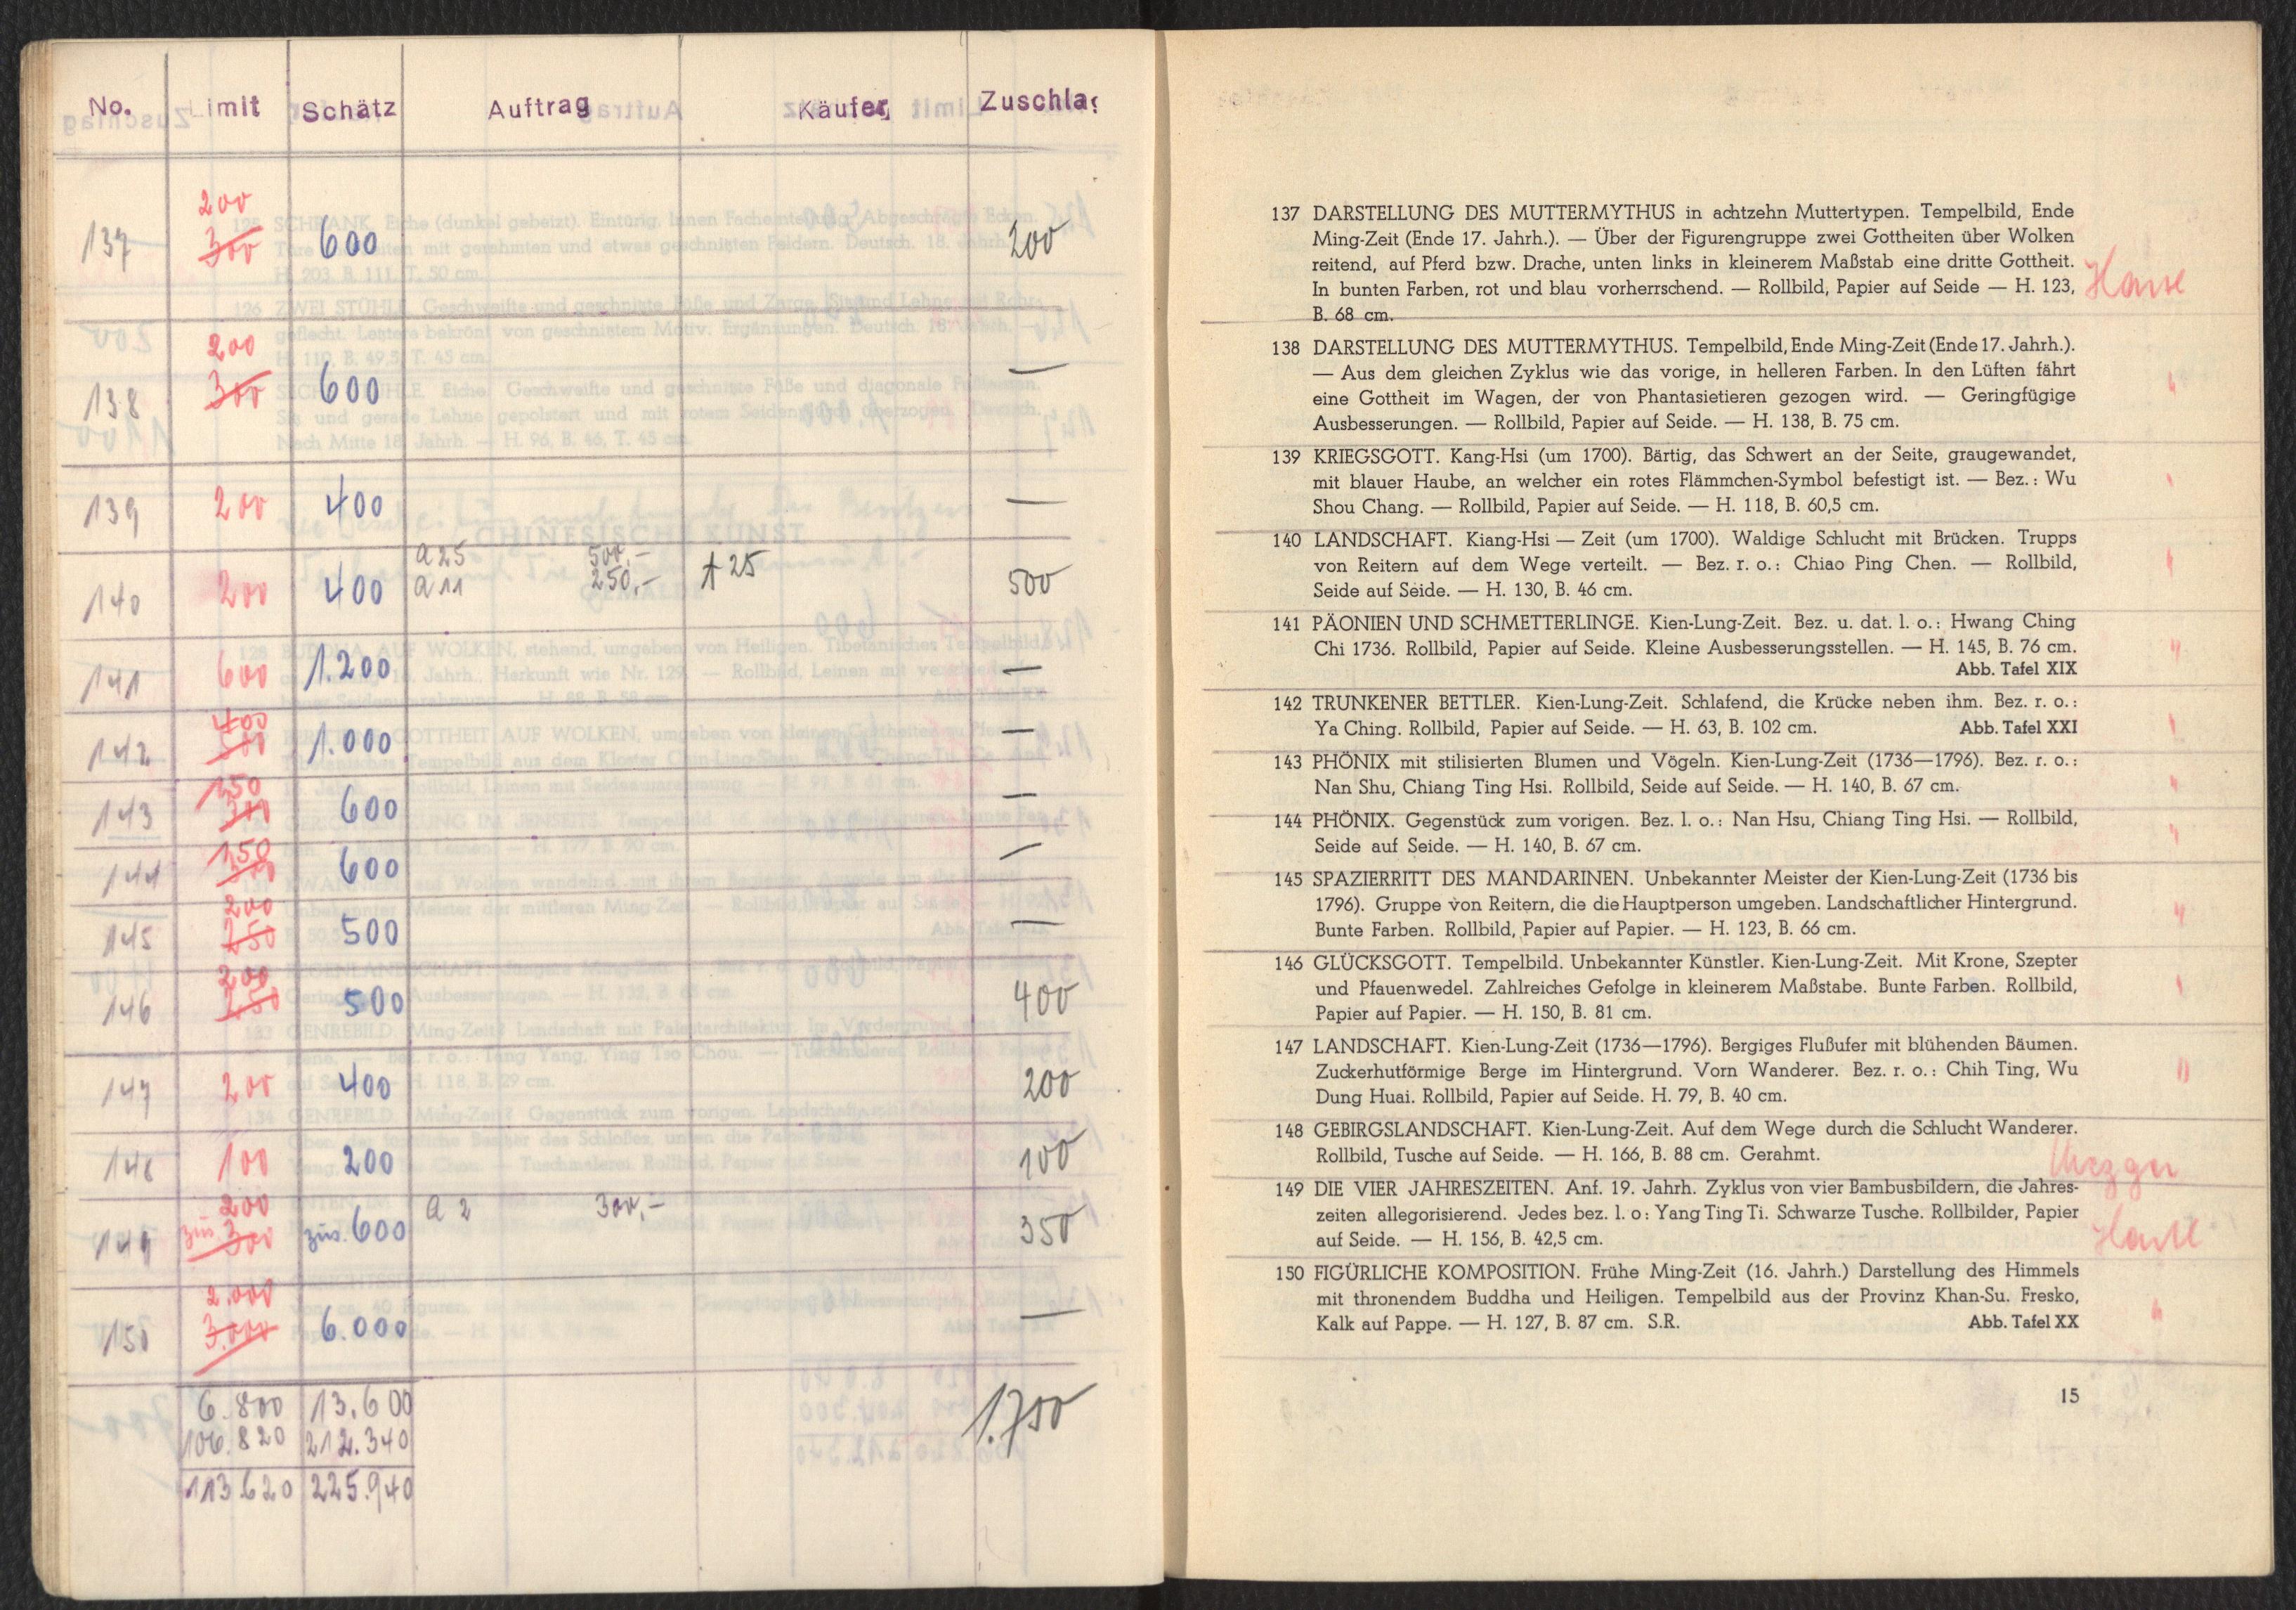 No. Limit Schätz Auftrag Käufer Zuschla
137 200 300 600 200
138 200 300 600 —
139 200 400 —
140 200 400 a 25 500.- a 11 250.- A 25 500
141 600 1.200 —
142 400 500 1.000 —
143 250 300 600 —
144 250 300 600 —
145 200 250 500 —
146 200 250 500 400
147 200 400 200
148 100 200 100
149 200 zus. 300 zus. 600 a 2 300.- 350
150 2.000 3.000 6.000 —
6.800 13.600 1.750
106.820 212.340
113.620 225.940
137 DARSTELLUNG DES MUTTERMYTHUS in achtzehn Muttertypen. Tempelbild, Ende
Ming-Zeit (Ende 17. Jahrh.). — Über der Figurengruppe zwei Gottheiten über Wolken
reitend, auf Pferd bzw. Drache, unten links in kleinerem Maßstab eine dritte Gottheit.
In bunten Farben, rot und blau vorherrschend. — Rollbild, Papier auf Seide — H. 123,
B. 68 cm.
138 DARSTELLUNG DES MUTTERMYTHUS. Tempelbild, Ende Ming-Zeit (Ende 17. Jahrh.).
— Aus dem gleichen Zyklus wie das vorige, in helleren Farben. In den Lüften fährt
eine Gottheit im Wagen, der von Phantasietieren gezogen wird. — Geringfügige
Ausbesserungen. — Rollbild, Papier auf Seide. — H. 138, B. 75 cm.
139 KRIEGSGOTT. Kang-Hsi (um 1700). Bärtig, das Schwert an der Seite, graugewandet,
mit blauer Haube, an welcher ein rotes Flämmchen-Symbol befestigt ist. — Bez.: Wu
Shou Chang. — Rollbild, Papier auf Seide. — H. 118, B. 60,5 cm.
140 LANDSCHAFT. Kiang-Hsi — Zeit (um 1700). Waldige Schlucht mit Brücken. Trupps
von Reitern auf dem Wege verteilt. — Bez. r. o.: Chiao Ping Chen. — Rollbild,
Seide auf Seide. — H. 130, B. 46 cm.
141 PÄONIEN UND SCHMETTERLINGE. Kien-Lung-Zeit. Bez. u. dat. l. o.: Hwang Ching
Chi 1736. Rollbild, Papier auf Seide. Kleine Ausbesserungsstellen. — H. 145, B. 76 cm.
Abb. Tafel XIX
142 TRUNKENER BETTLER. Kien-Lung-Zeit. Schlafend, die Krücke neben ihm. Bez. r. o.:
Ya Ching. Rollbild, Papier auf Seide. — H. 63, B. 102 cm. Abb. Tafel XXI
143 PHÖNIX mit stilisierten Blumen und Vögeln. Kien-Lung-Zeit (1736—1796). Bez. r. o.:
Nan Shu, Chiang Ting Hsi. Rollbild, Seide auf Seide. — H. 140, B. 67 cm.
144 PHÖNIX. Gegenstück zum vorigen. Bez. l. o.: Nan Hsu, Chiang Ting Hsi. — Rollbild,
Seide auf Seide. — H. 140, B. 67 cm.
145 SPAZIERRITT DES MANDARINEN. Unbekannter Meister der Kien-Lung-Zeit (1736 bis
1796). Gruppe von Reitern, die die Hauptperson umgeben. Landschaftlicher Hintergrund.
Bunte Farben. Rollbild, Papier auf Papier. — H. 123, B. 66 cm.
146 GLÜCKSGOTT. Tempelbild. Unbekannter Künstler. Kien-Lung-Zeit. Mit Krone, Szepter
und Pfauenwedel. Zahlreiches Gefolge in kleinerem Maßstabe. Bunte Farben. Rollbild,
Papier auf Papier. — H. 150, B. 81 cm.
147 LANDSCHAFT. Kien-Lung-Zeit (1736—1796). Bergiges Flußufer mit blühenden Bäumen.
Zuckerhutförmige Berge im Hintergrund. Vorn Wanderer. Bez. r. o.: Chih Ting, Wu
Dung Huai. Rollbild, Papier auf Seide. H. 79, B. 40 cm.
148 GEBIRGSLANDSCHAFT. Kien-Lung-Zeit. Auf dem Wege durch die Schlucht Wanderer.
Rollbild, Tusche auf Seide. — H. 166, B. 88 cm. Gerahmt.
149 DIE VIER JAHRESZEITEN. Anf. 19. Jahrh. Zyklus von vier Bambusbildern, die Jahres-
zeiten allegorisierend. Jedes bez. l. o: Yang Ting Ti. Schwarze Tusche. Rollbilder, Papier
auf Seide. — H. 156, B. 42,5 cm.
150 FIGÜRLICHE KOMPOSITION. Frühe Ming-Zeit (16. Jahrh.) Darstellung des Himmels
mit thronendem Buddha und Heiligen. Tempelbild aus der Provinz Khan-Su. Fresko,
Kalk auf Pappe. — H. 127, B. 87 cm. S.R. Abb. Tafel XX
15